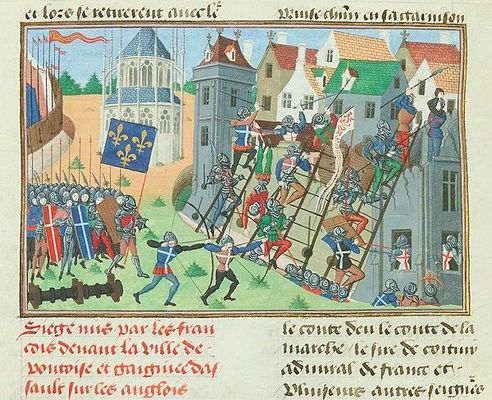 et lors se retirerent avec le
prinse chün en sa garnison
Siege mis par les fran
cois devant la ville de
pontoise et gaignee das
sault sur les anglois
le conte deu le conte de la
marche le sire de coitiui
admiral de france et
plusieurs autres seigne